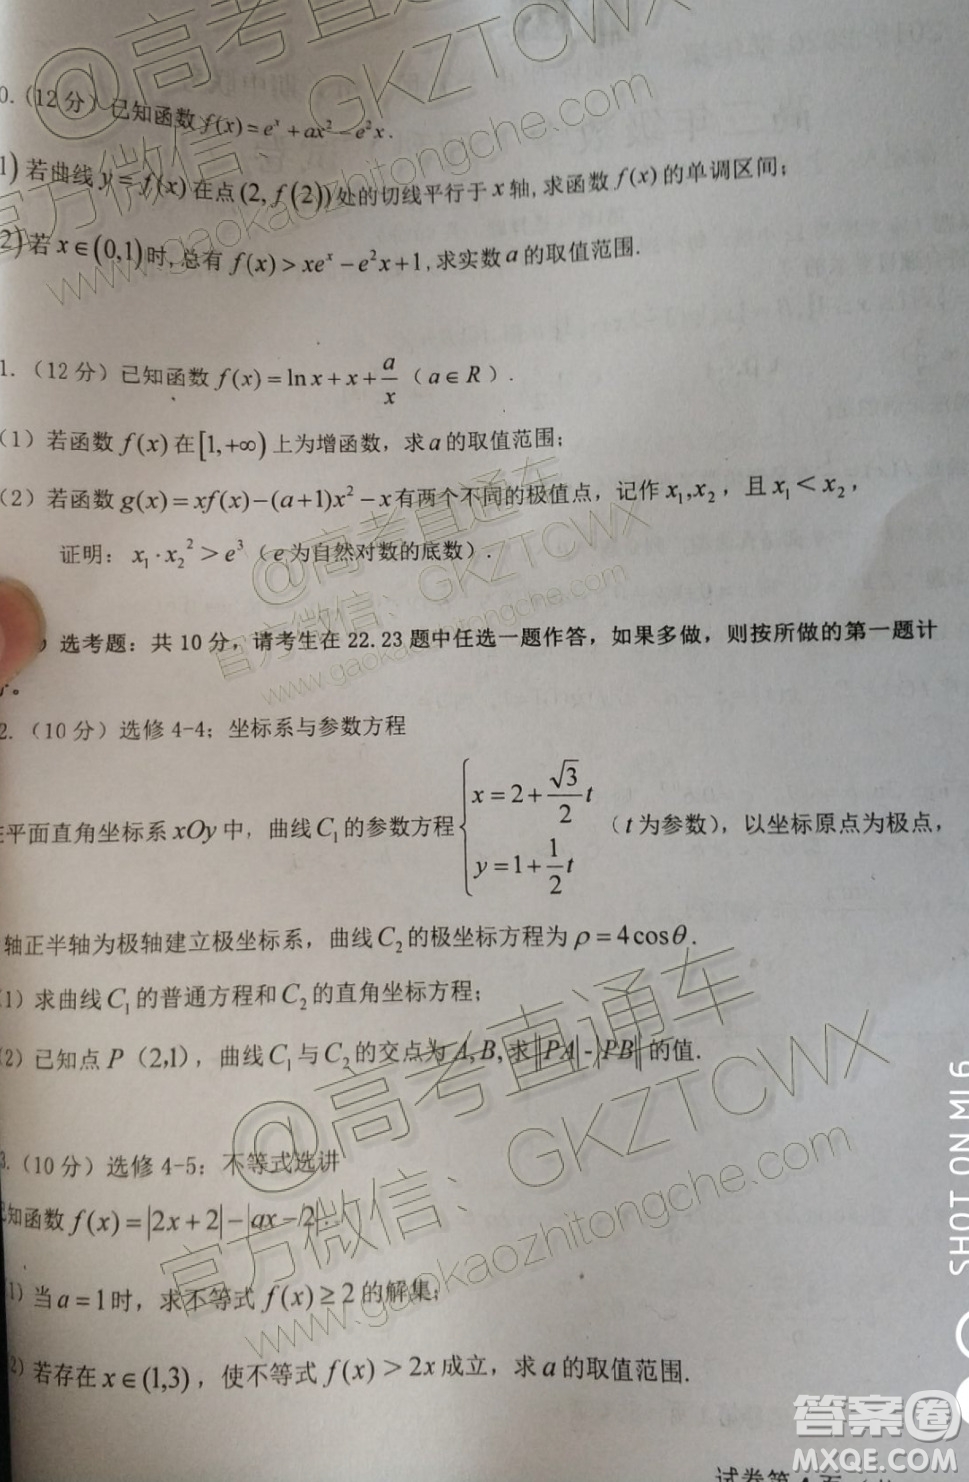 0.（12分）已知函数 f(x)=eˣ+ax²−e²x.
1) 若曲线 y=f(x) 在点(2, f(2))处的切线平行于 x 轴,求函数 f(x) 的单调区间;
2) 若 x∈(0,1)时,总有 f(x)>xeˣ−e²x+1,求实数 a 的取值范围.
1.（12分）已知函数 f(x)=ln x+x+a/x（a∈R）.
(1) 若函数 f(x) 在[1,+∞) 上为增函数，求 a 的取值范围;
(2) 若函数 g(x)=xf(x)−(a+1)x²−x 有两个不同的极值点，记作 x₁,x₂，且 x₁<x₂，
证明：x₁·x₂²>e³（e 为自然对数的底数）.
选考题：共10分，请考生在22.23题中任选一题作答，如果多做，则按所做的第一题计
分。
2.（10分）选修4-4；坐标系与参数方程
在平面直角坐标系 xOy 中，曲线C₁的参数方程 { x=2+√3/2 t
y=1+1/2 t （t 为参数），以坐标原点为极点，
轴正半轴为极轴建立极坐标系，曲线C₂的极坐标方程为 ρ=4cosθ.
(1) 求曲线C₁的普通方程和C₂的直角坐标方程;
(2) 已知点 P（2,1），曲线C₁与C₂的交点为 A,B,求|PA|-|PB|的值.
3.（10分）选修4-5：不等式选讲
已知函数 f(x)=|2x+2|−|ax−2|.
1) 当 a=1时，求不等式 f(x)≥2的解集;
2) 若存在 x∈(1,3)，使不等式 f(x)>2x成立，求 a 的取值范围.
试卷第4页
@高考直通车
官方微信：GKZTCWX
www.gaokaozhitongche.com
@高考直通车
官方微信：GKZTCWX
www.gaokaozhitongche.com
@高考直通车
官方微信：GKZTCWX
www.gaokaozhitongche.com
SHOT ON MI 9
答案圈
MXQE.COM